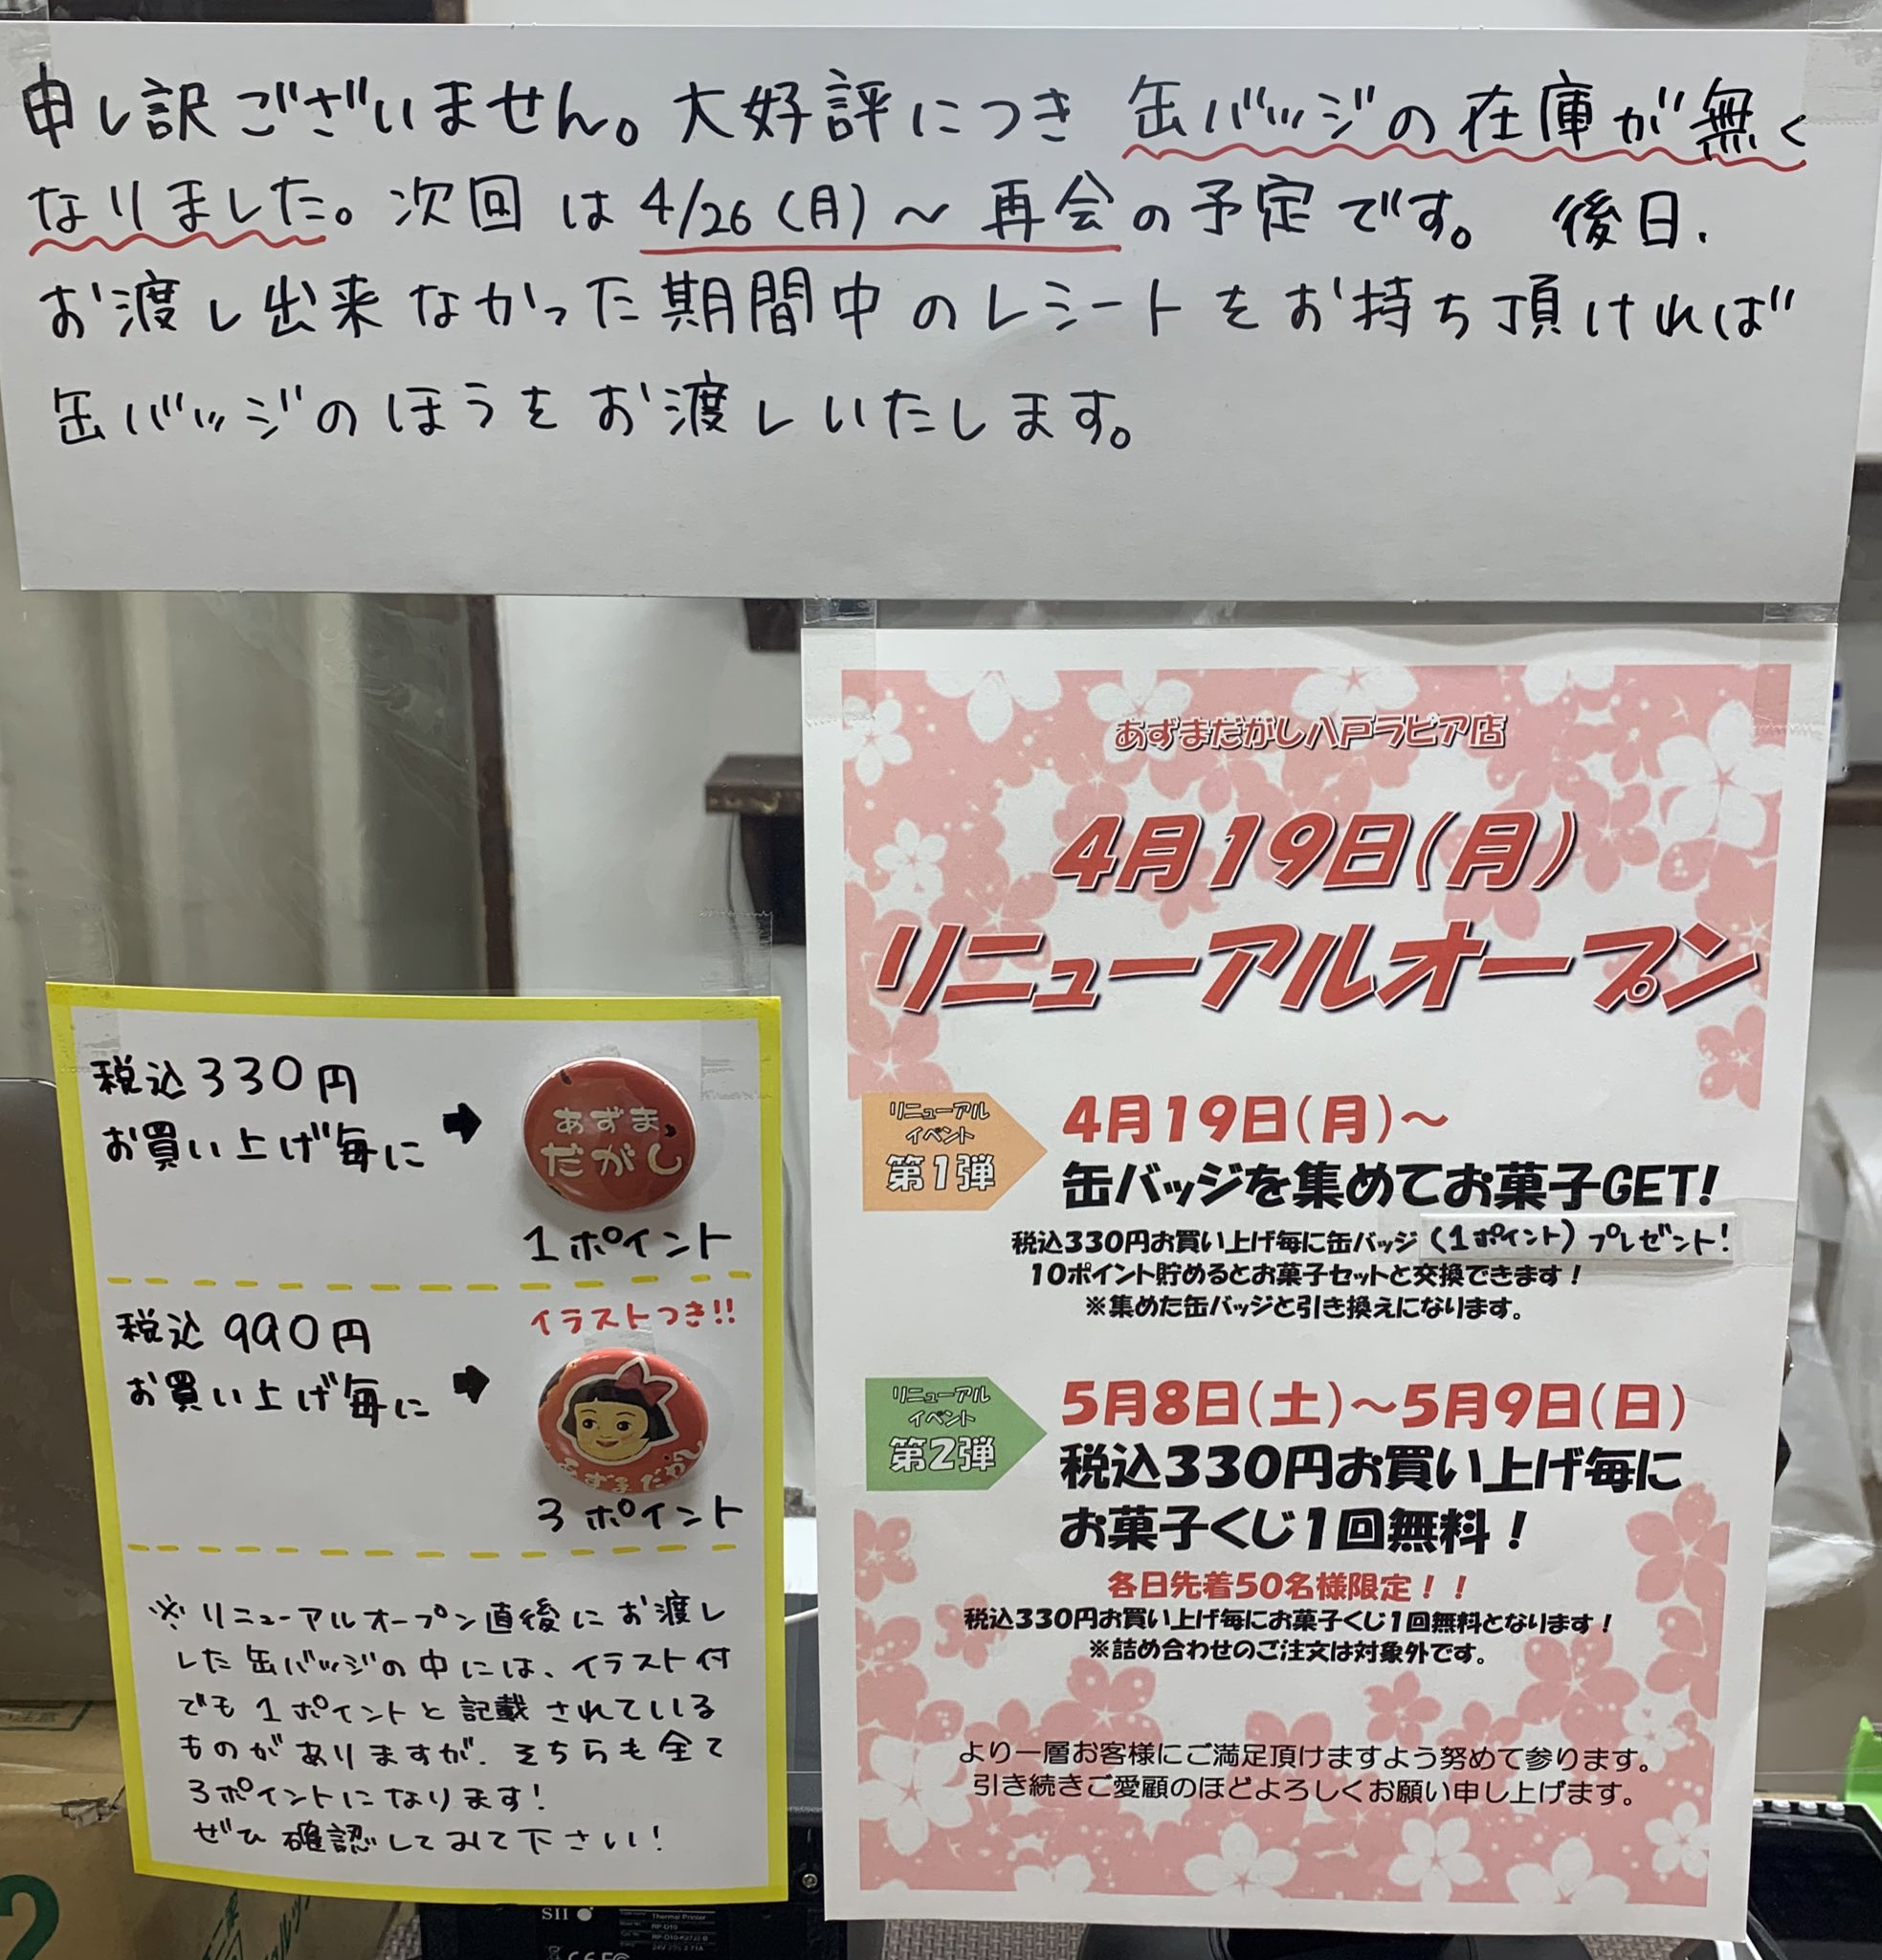 申し訳ございません。大好評につき 缶バッジの在庫が無く
なりました。次回は 4/26(月)〜 再会の予定です。 後日、
お渡し出来なかった期間中のレシートをお持ち頂ければ
缶バッジのほうをお渡しいたします。
税込330円
お買い上げ毎に
あずま
だがし
1ポイント
税込990円
お買い上げ毎に
イラストつき!!
あずまだがし
3ポイント
※リニューアルオープン直後にお渡し
した缶バッジの中には、イラスト付
でも1ポイントと記載されている
ものがありますが、そちらも全て
3ポイントになります!
ぜひ確認してみて下さい!
あずまだがし八戸ラピア店
4月19日(月)
リニューアルオープン
リニューアル
イベント
第1弾
4月19日(月)〜
缶バッジを集めてお菓子GET!
税込330円お買い上げ毎に缶バッジ(1ポイント)プレゼント!
10ポイント貯めるとお菓子セットと交換できます!
※集めた缶バッジと引き換えになります。
リニューアル
イベント
第2弾
5月8日(土)〜5月9日(日)
税込330円お買い上げ毎に
お菓子くじ1回無料!
各日先着50名様限定!!
税込330円お買い上げ毎にお菓子くじ1回無料となります!
※詰め合わせのご注文は対象外です。
より一層お客様にご満足頂けますよう努めて参ります。
引き続きご愛顧のほどよろしくお願い申し上げます。
2
SII
Thermal Printer
RP-D10